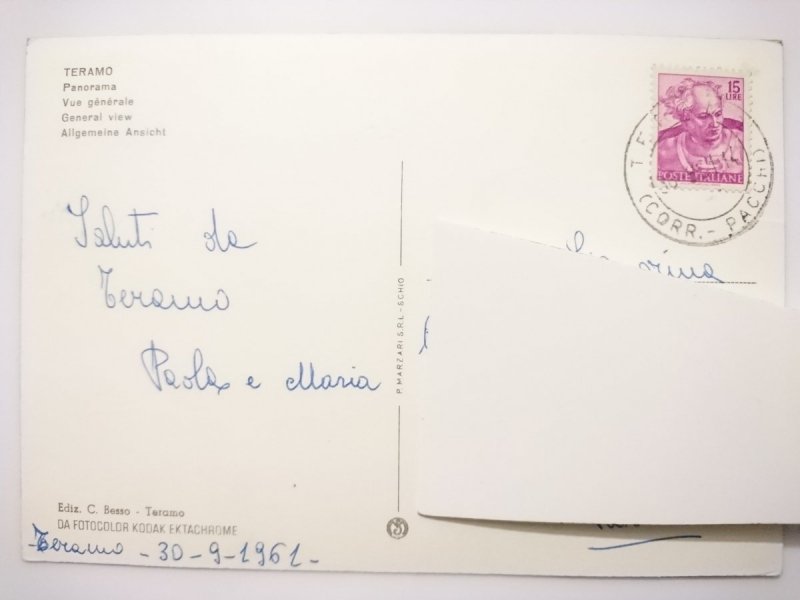 TERAMO
Panorama
Vue générale
General view
Allgemeine Ansicht
15
LIRE
POSTE ITALIANE
(CORR. - PACCHI)
Saluti da
Teramo
Paola e Maria
P. MARZARI S.R.L. - SCHIO
Ediz. C. Besso - Teramo
DA FOTOCOLOR KODAK EKTACHROME
Teramo - 30-9-1961-